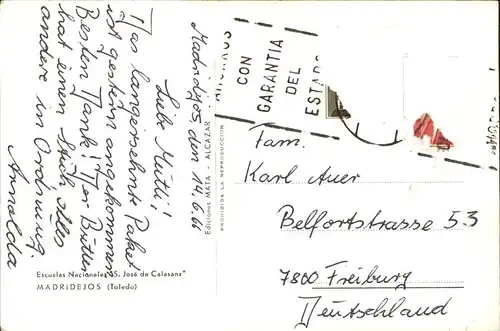 Madridejos, den 14.6.66
Liebe Mutti!
Das langersehnte Paket
ist gestern angekommen
Besten Dank! Der Butter
hat einen Stich alles
andere in Ordnung.
Annelda
Escuelas Nacionales "S. José de Calasanz"
MADRIDEJOS (Toledo)
Ediciones MATA - ALCAZAR
PROHIBIDA LA REPRODUCCION
CON
GARANTIA
DEL
ESTADO
Fam.
Karl Auer
Belfortstrasse 53
7800 Freiburg
Deutschland